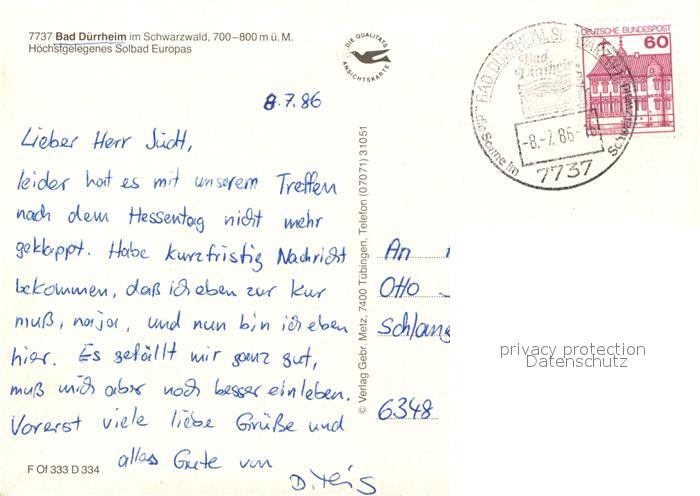 7737 Bad Dürrheim im Schwarzwald, 700–800 m ü. M.
Höchstgelegenes Solbad Europas
DIE QUALITÄTS
ANSICHTSKARTE
DEUTSCHE BUNDESPOST
60
BAD DÜRRHEIM, SCHWARZWALD
Bad
Dürrheim
-8.-7.86-
7737
8.7.86
Lieber Herr Jücht,
leider hat es mit unserem Treffen
nach dem Hessentag nicht mehr
geklappt. Habe kurzfristig Nachricht
bekommen, daß ich eben zur Kur
muß, naja, und nun bin ich eben
hier. Es gefällt mir ganz gut,
muß mich aber noch besser einleben.
Vorerst viele liebe Grüße und
alles Gute von
F Of 333 D 334
© Verlag Gebr. Metz, 7400 Tübingen, Telefon (07071) 31051
An
Otto
Schlang
6348
privacy protection
Datenschutz